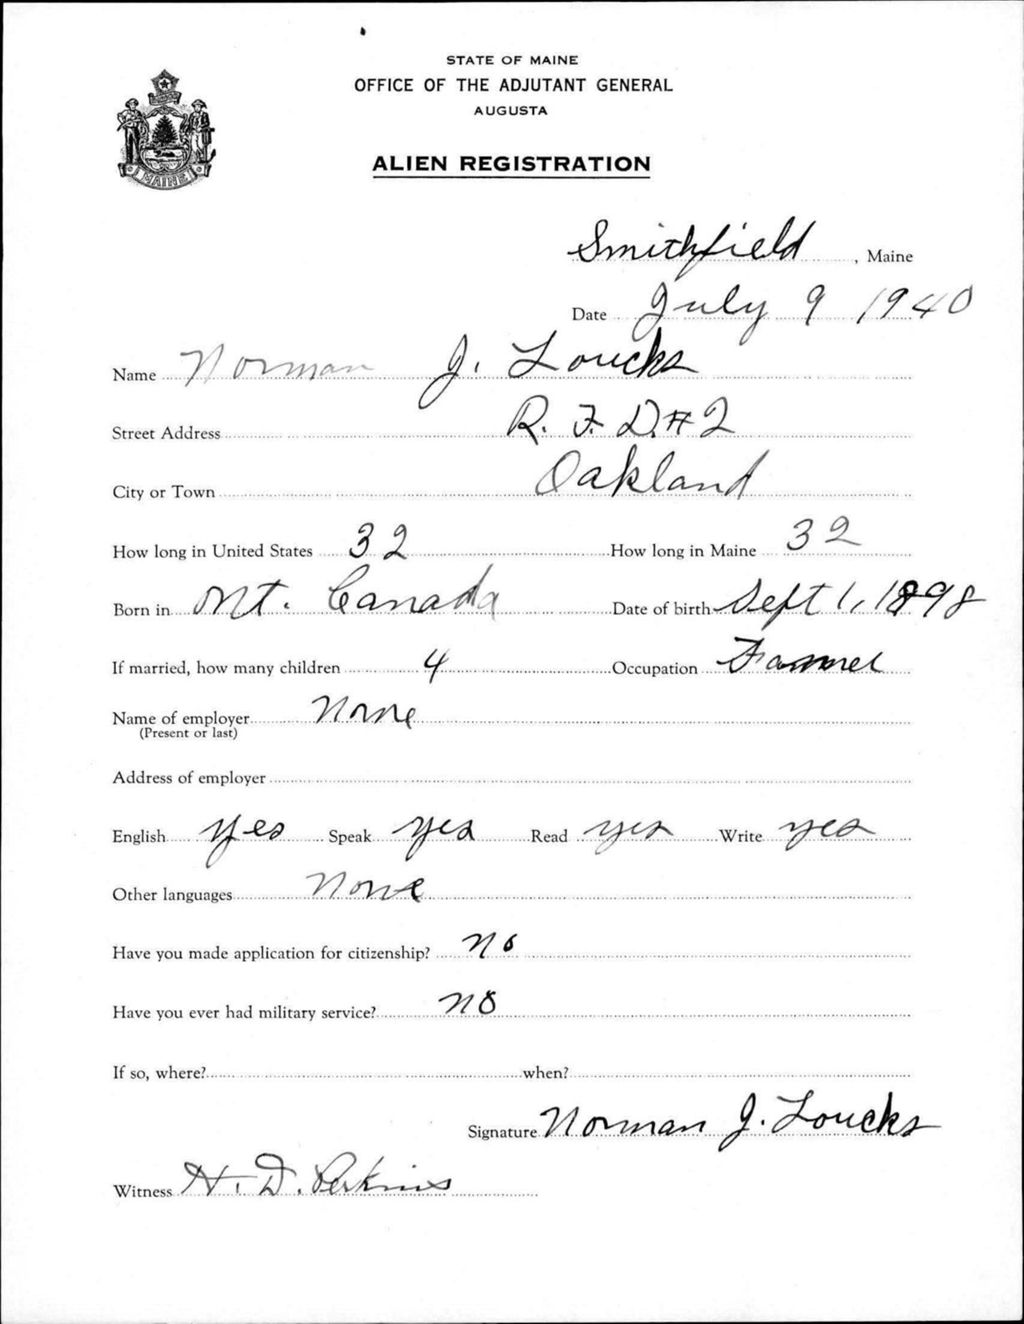 STATE OF MAINE
OFFICE OF THE ADJUTANT GENERAL
AUGUSTA
ALIEN REGISTRATION
MAINE
Smithfield, Maine
Date July 9 1940
Name Norman J. Loucks
Street Address R. F. D. # 2
City or Town Oakland
How long in United States 32 How long in Maine 32
Born in Ont. Canada Date of birth Sept 1, 1898
If married, how many children 4 Occupation Farmer
Name of employer None
(Present or last)
Address of employer
English yes Speak yes Read yes Write yes
Other languages None
Have you made application for citizenship? No
Have you ever had military service? no
If so, where? when?
Signature Norman J. Loucks
Witness H. D. Perkins